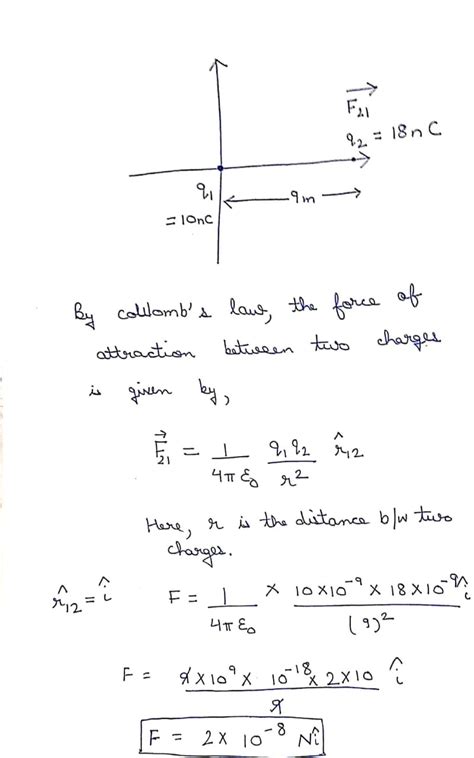 F⃗₂₁
q₂ = 18nC
q₁
= 10nC
9m
By coulomb's law, the force of
attraction between two charges
is given by,
F⃗₂₁ = 1/4πε₀ q₁q₂/r² r̂₁₂
Here, r is the distance b/w two
charges.
r̂₁₂ = î F = 1/4πε₀ × 10×10⁻⁹ × 18×10⁻⁹ î/(9)²
F = 9×10⁹ × 10⁻¹⁸ × 2×10 î/9
F = 2× 10⁻⁸ Nî